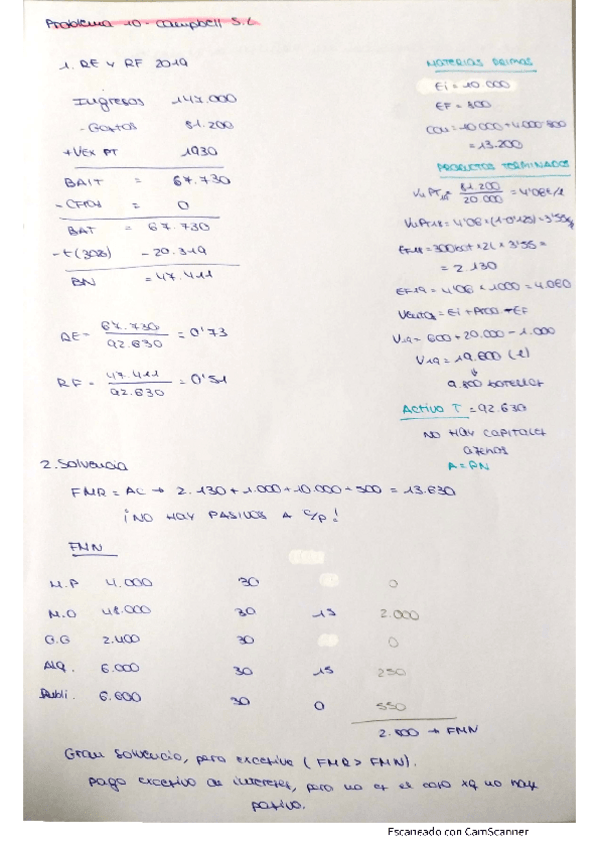 Problema 10 - Campbell S.L
1. RE y RF 2019
Ingresos 147.000
- Gastos 81.200
+ VEX PT 1930
BAIT = 67.730
- CFtos = 0
BAT = 67.730
- t (30%) - 20.319
BN = 47.411
RE = 67.730 / 92.630 = 0'73
RF = 47.411 / 92.630 = 0'51
MATERIAS PRIMAS
Ei = 10.000
EF = 800
COM = 10.000 + 4.000 - 800
= 13.200
PRODUCTOS TERMINADOS
VuPT19 = 81.200 / 20.000 = 4'06€/l
VuPT18 = 4'06 × (1-0'125) = 3'55
EF18 = 300bot × 2l × 3'55 =
= 2.130
EF19 = 4'06 × 1000 = 4.060
Ventas = Ei + Prod. - EF
V19 = 600 + 20.000 - 1.000
V19 = 19.600 (l)
9.800 botellas
Activo T = 92.630
NO HAY CAPITALES
AJENOS
A = PN
2. Solvencia
FMR = AC → 2.130 + 1.000 + 10.000 + 500 = 13.630
¡NO HAY PASIVOS A C/P!
FMN
M.P 4.000 30 0
M.O 48.000 30 15 2.000
G.G 2.400 30 0
Alq. 6.000 30 15 250
Publi. 6.600 30 0 550
2.800 → FMN
Gran solvencia, pero excesiva (FMR > FMN).
Pago excesivo de intereses, pero no es el caso xq no hay
pasivo.
Escaneado con CamScanner